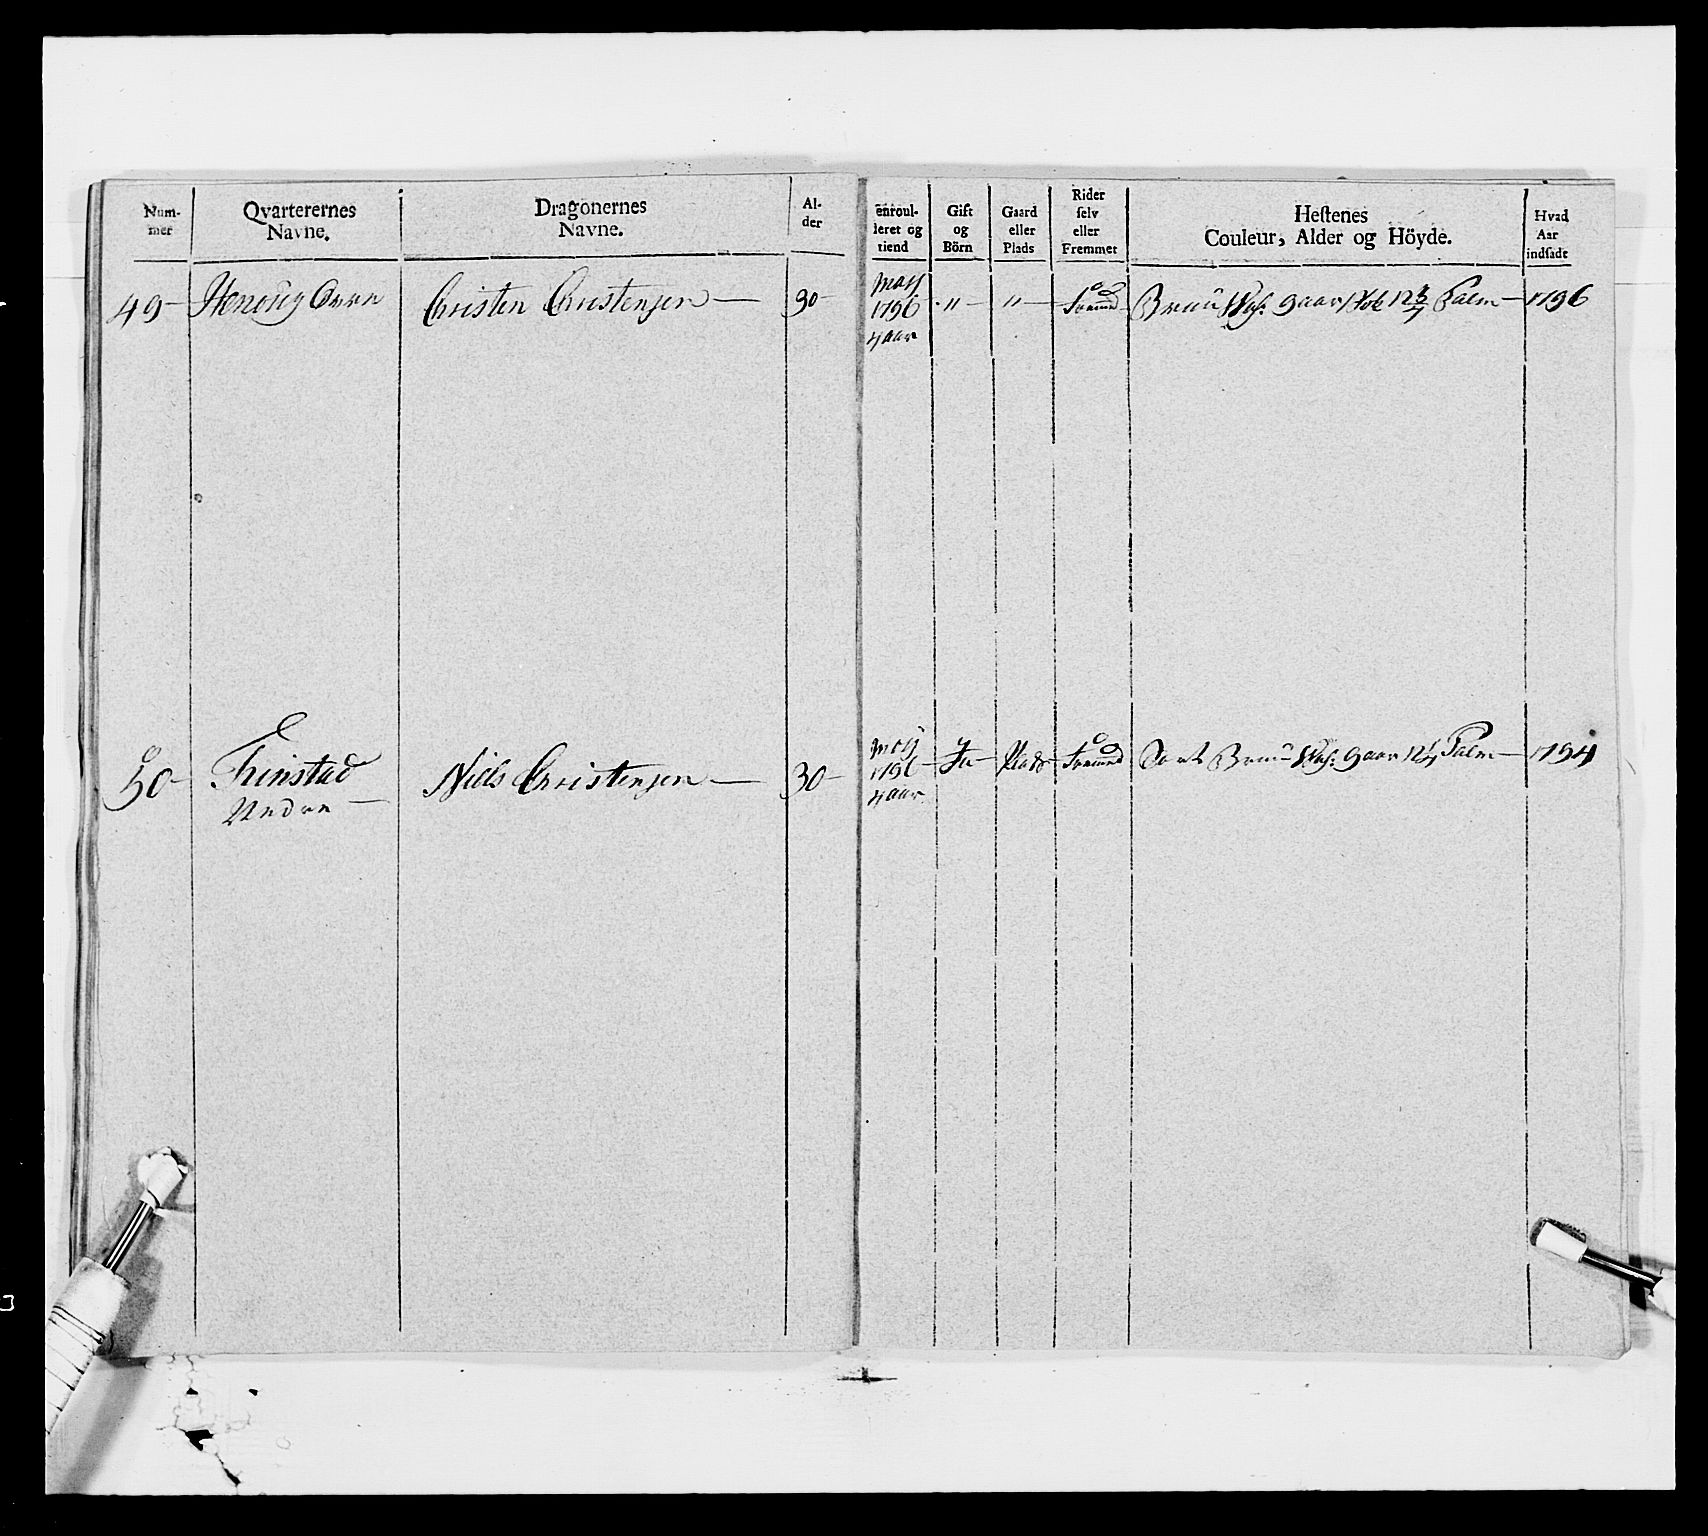 Num-
mer
Qvarterernes
Navne.
Dragonernes
Navne.
Al-
der
enroul-
leret og
tiend
Gift
og
Börn
Gaard
eller
Plads
Rider
selv
eller
Fremmet
Hestenes
Couleur, Alder og Höyde.
Hvad
Aar
indsadt
49 Christen Christensen 30 may 1796 4 aar " " Fremed Bruun 9 aar 12 3/4 Palm 1796
50 Finstad Nedre Niels Christensen 30 may 1796 4 aar Ja Plads Fremed Sort Bruun 9 aar 12 1/4 Palm 1794